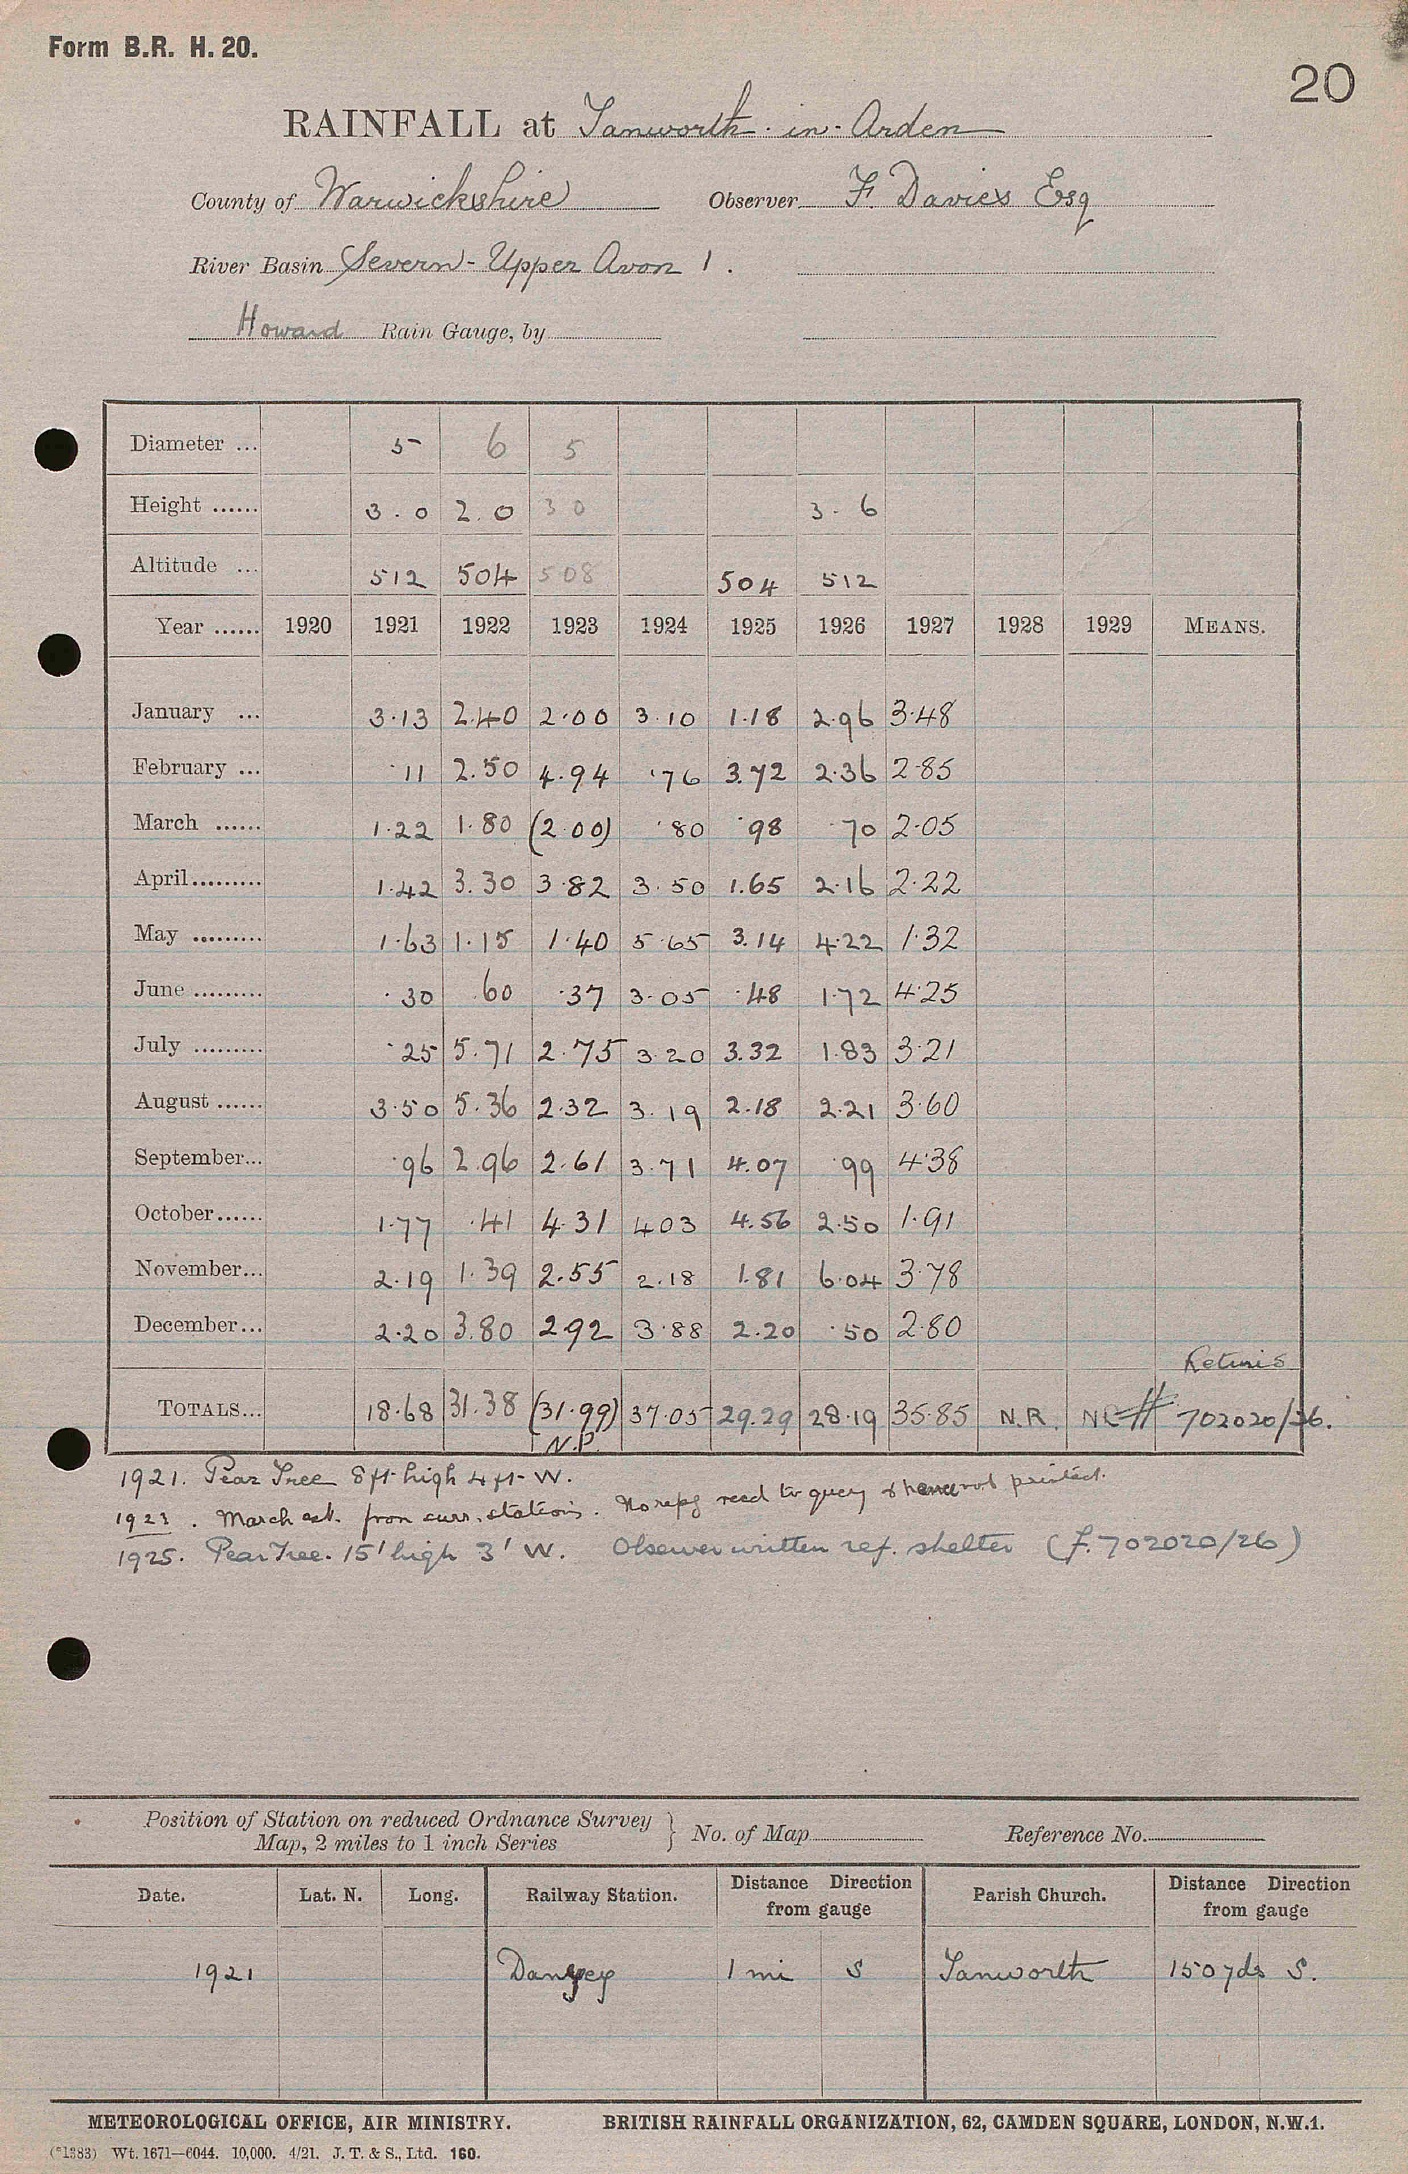 Form B.R. H. 20.
20
RAINFALL at Tanworth-in-Arden
County of Warwickshire Observer F. Davies Esq
River Basin Severn - Upper Avon 1.
Howard Rain Gauge, by
Diameter ... 5 6 5
Height ...... 3.0 2.0 30 3.6
Altitude ... 512 504 508 504 512
Year ...... 1920 1921 1922 1923 1924 1925 1926 1927 1928 1929 MEANS.
January ... 3.13 2.40 2.00 3.10 1.18 2.96 3.48
February ... .11 2.50 4.94 .76 3.72 2.36 2.85
March ...... 1.22 1.80 (2.00) .80 .98 .70 2.05
April......... 1.42 3.30 3.82 3.50 1.65 2.16 2.22
May ......... 1.63 1.15 1.40 5.65 3.14 4.22 1.32
June ......... .30 .60 .37 3.05 .48 1.72 4.25
July ......... .25 5.71 2.75 3.20 3.32 1.83 3.21
August ...... 3.50 5.36 2.32 3.19 2.18 2.21 3.60
September... .96 2.96 2.61 3.71 4.07 .99 4.38
October...... 1.77 .41 4.31 4.03 4.56 2.50 1.91
November... 2.19 1.39 2.55 2.18 1.81 6.04 3.78
December... 2.20 3.80 2.92 3.88 2.20 .50 2.80
Returns
TOTALS... 18.68 31.38 (31.99) 37.05 29.29 28.19 35.85 N.R. NR 702020/26.
N.P.
1921. Pear Tree 8ft high 4ft W.
1923. March est. from surr. stations. No reply recd to query & hence not printed.
1925. Pear Tree. 15' high 3' W. Observer written ref. shelter (f. 702020/26)
Position of Station on reduced Ordnance Survey
Map, 2 miles to 1 inch Series } No. of Map Reference No.
Date. Lat. N. Long. Railway Station. Distance Direction from gauge Parish Church. Distance Direction from gauge
1921 Danzey 1 mi S Tanworth 150 yds S.
METEOROLOGICAL OFFICE, AIR MINISTRY. BRITISH RAINFALL ORGANIZATION, 62, CAMDEN SQUARE, LONDON, N.W.1.
(*1383) Wt. 1671—6044. 10,000. 4/21. J. T. & S., Ltd. 160.